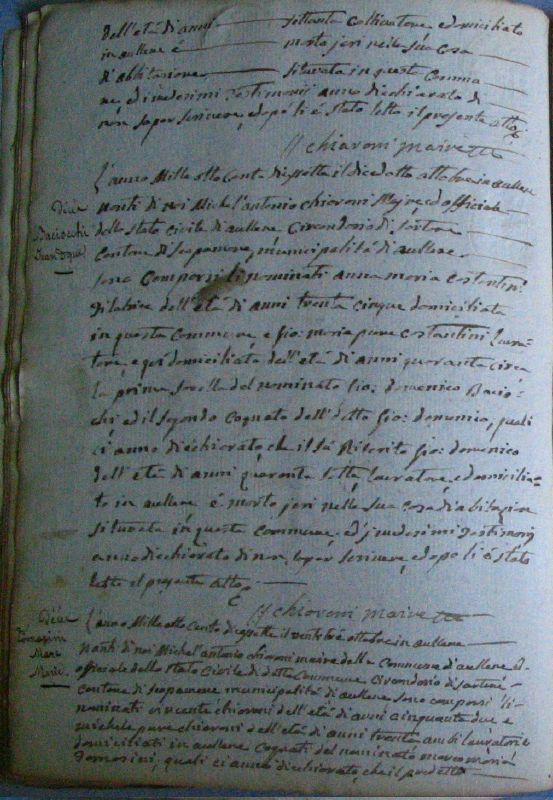 dell'età di anni settanta coltivatore, e domiciliato
in aullene é morto jeri nella sua casa
d'abbitazione situvata in questa Commu
ne, ed i medesimi Testimonij anno diechiarato di
non saper scrivere, e dopo li é stato letto il presente atto
chiaroni maire
L'anno Mille otto Cento dieci sette il dieci otto ottobre in aullene
nanti di noi Michel'antonio chiaroni Mayre, ed officiale
dello stato civile di aullene Circondario di Sartene
Cantone di Scopamene, municipalità di aullene
Décé
Baciocchi
Jean Dque
sono Comparsi li nominati anna maria Costantini
filatrice dell'età di anni trenta cinque domiciliata
in questa Commune, e Gio: maria pure Costantini Lavora
tore, e qui domiciliato dell'età di anni quaranta circa
la prima sorella del nominato Gio: domenico Bacio
chi ed il segondo Cognato dell'detto Gio: domenico, quali
ci anno diechiarato, che il sú Riferito Gio: domenico
dell'età di anni quaranta sette lavoratore, e domicilia
to in aullene é morto jeri nella sua casa di abitazione
situvata in questa Commune, ed j medesimi Testimonj
anno diechiarato di non saper scrivere, e dopo li é stato
letto il presente atto
chiaroni maire
Décé
Tomasini
Marc
Marie
L'anno Mille otto Cento dieci sette il ottobre in aullene
nanti di noi Michel'antonio chiaroni maire della Commune d'aullene ed
officiale dello stato Civile di detta Commune, circondario di Sartene
cantone di Scopamene municipalità di aullene sono comparsi li
nominati vincente chiaroni dell'età di anni cinquanta due e
michele pure chiaroni dell'età di anni trenta ambi lavoratori e
domiciliati in aullene Cognati del nominato marco maria
Tomasini, quali ci anno diechiarato, che il predetto